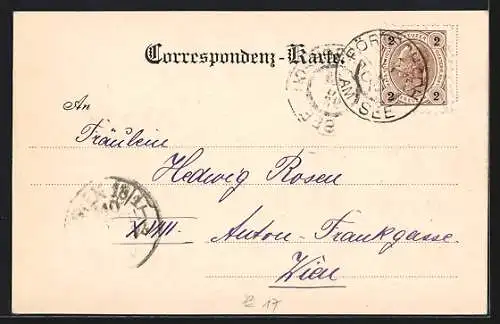 Correspondenz-Karte.
FÖR
AM SEE
2 2
2 2
An
Fräulein
Hedwig Rosen
XVIII. Anton-Frankgasse.
Wien
17